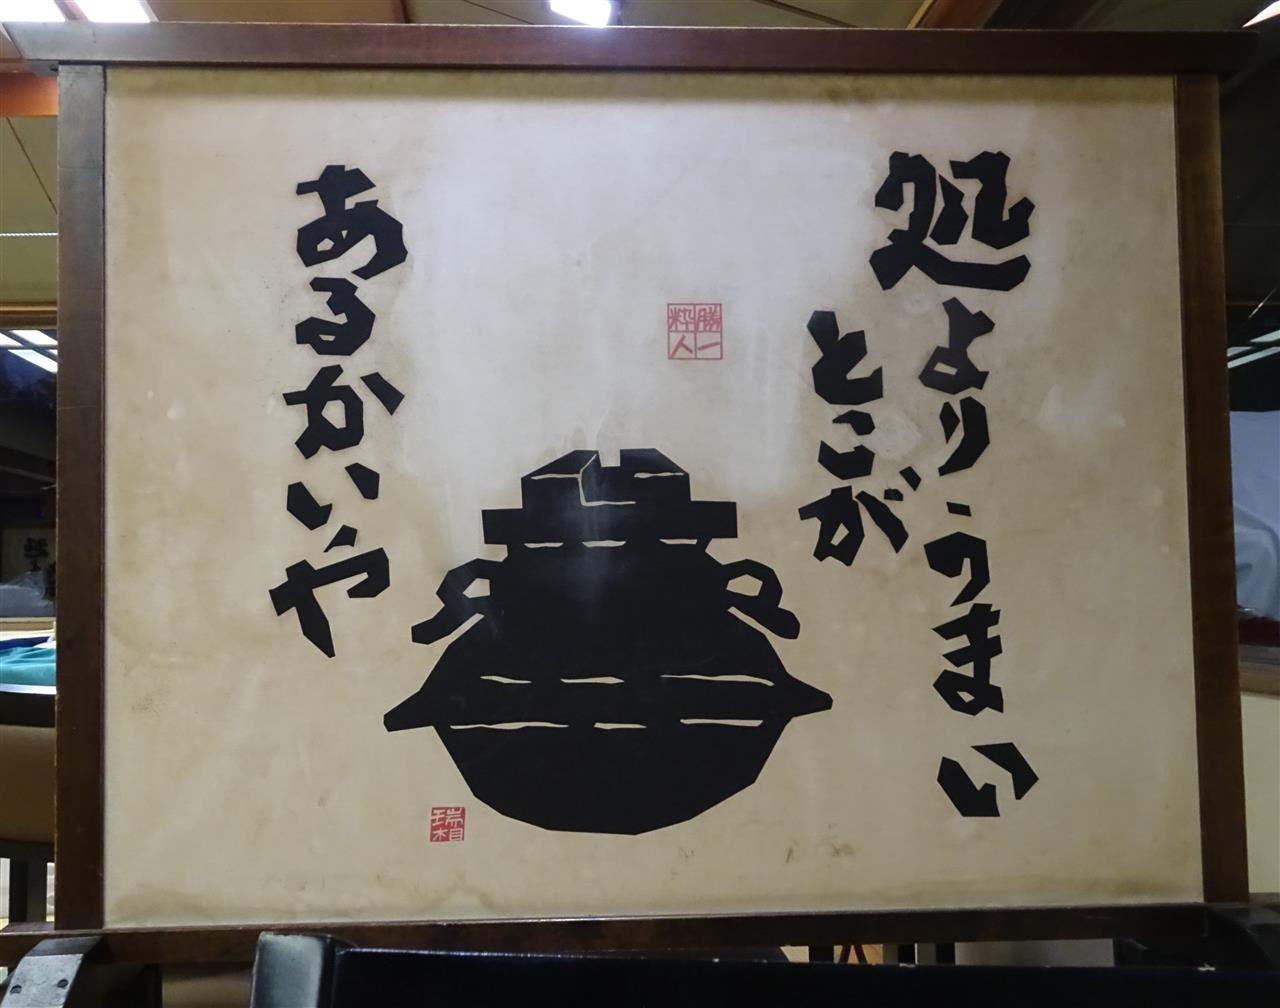 処よりうまい
とこが
あるかいや
勝一
粋人
瑞相